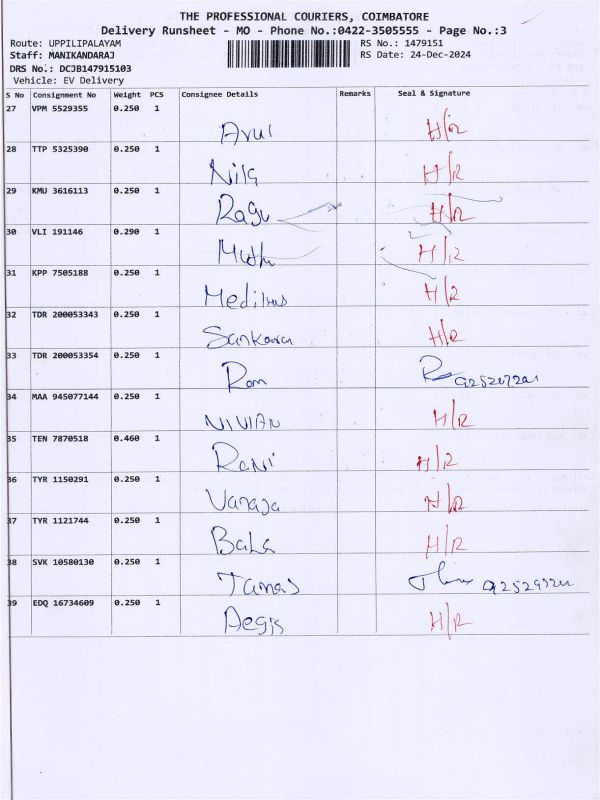 THE PROFESSIONAL COURIERS, COIMBATORE
Delivery Runsheet - MO - Phone No.:0422-3505555 - Page No.:3
Route: UPPILIPALAYAM RS No.: 1479151
Staff: MANIKANDARAJ RS Date: 24-Dec-2024
DRS No.: DCJB147915103
Vehicle: EV Delivery
S No Consignment No Weight PCS Consignee Details Remarks Seal & Signature
27 VPM 5529355 0.250 1
Arul H/R
28 TTP 5325390 0.250 1
Nila H/R
29 KMU 3616113 0.250 1
Ragu H/R
30 VLI 191146 0.290 1
Muthu H/R
31 KPP 7505188 0.250 1
H/R
32 TDR 200053343 0.250 1
Sankara H/R
33 TDR 200053354 0.250 1
Ram
34 MAA 945077144 0.250 1
NIVIAN H/R
35 TEN 7870518 0.460 1
Rani H/R
36 TYR 1150291 0.250 1
Vanaja H/R
37 TYR 1121744 0.250 1
Bala H/R
38 SVK 10580130 0.250 1
Tamas
39 EDQ 16734609 0.250 1
Aegis H/R